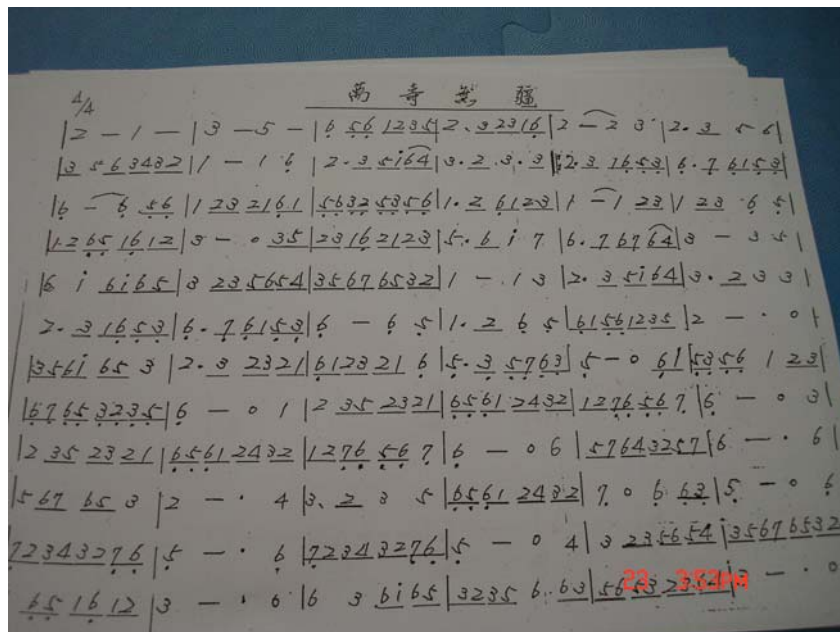 萬壽無疆
4/4
|2 — 1 — |3 — 5 — |6 56 1235|2. 3 2316|2 — 2 3 |2. 3 5 6|
|3 563432|1 — 1 6 |2. 3 5i64|3. 2 3. 3|:2. 3 1653|6. 7 6153|
|6 — 6 56|1 23 2161|5632 5356|1. 2 6123|1 — 1 23|1 23 6 5|
|1265 1612|3 — 0 35|23162123|5. 6 i 7 |6. 7 6764|3 — 3 5|
|6 i 6i65|3 235654|35676532|1 — 1 3 |2. 3 5i64|3. 2 3 3|
2. 3 1653|6. 7 6153|6 — 6 5|1. 2 6 5|61561235|2 — · 0|
|356i 65 3|2. 3 2321|612321 6|5. 3 5763|5 — 0 61|5356 1 23|
|6765 3235|6 — 0 1|2 35 2321|6561 2432|127656 7|6 — 0 3|
|2 35 2321|6561 2432|1276 56 7|6 — 0 6|57643257|6 — · 6|
|567 65 3|2 — · 4|3. 2 3 5|6561 2432|7 0 6 63|5 — 0 6
72343276|5 — · 6|72343276|5 — 0 4|3 235654|35676532
65 1612|3 — · 0|6 3 6i65|3235 6. 63|
23 3:53PM